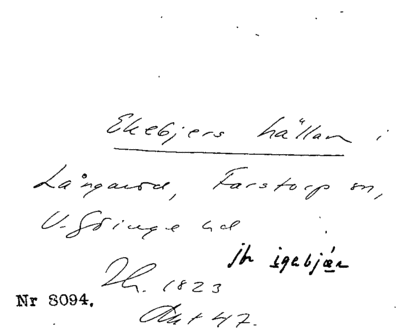 Ekebjers hällan i
Långaröd, Farstorp sn,
V. Göinge hd
jfr igebjär
Nr 8094.
1823
47.